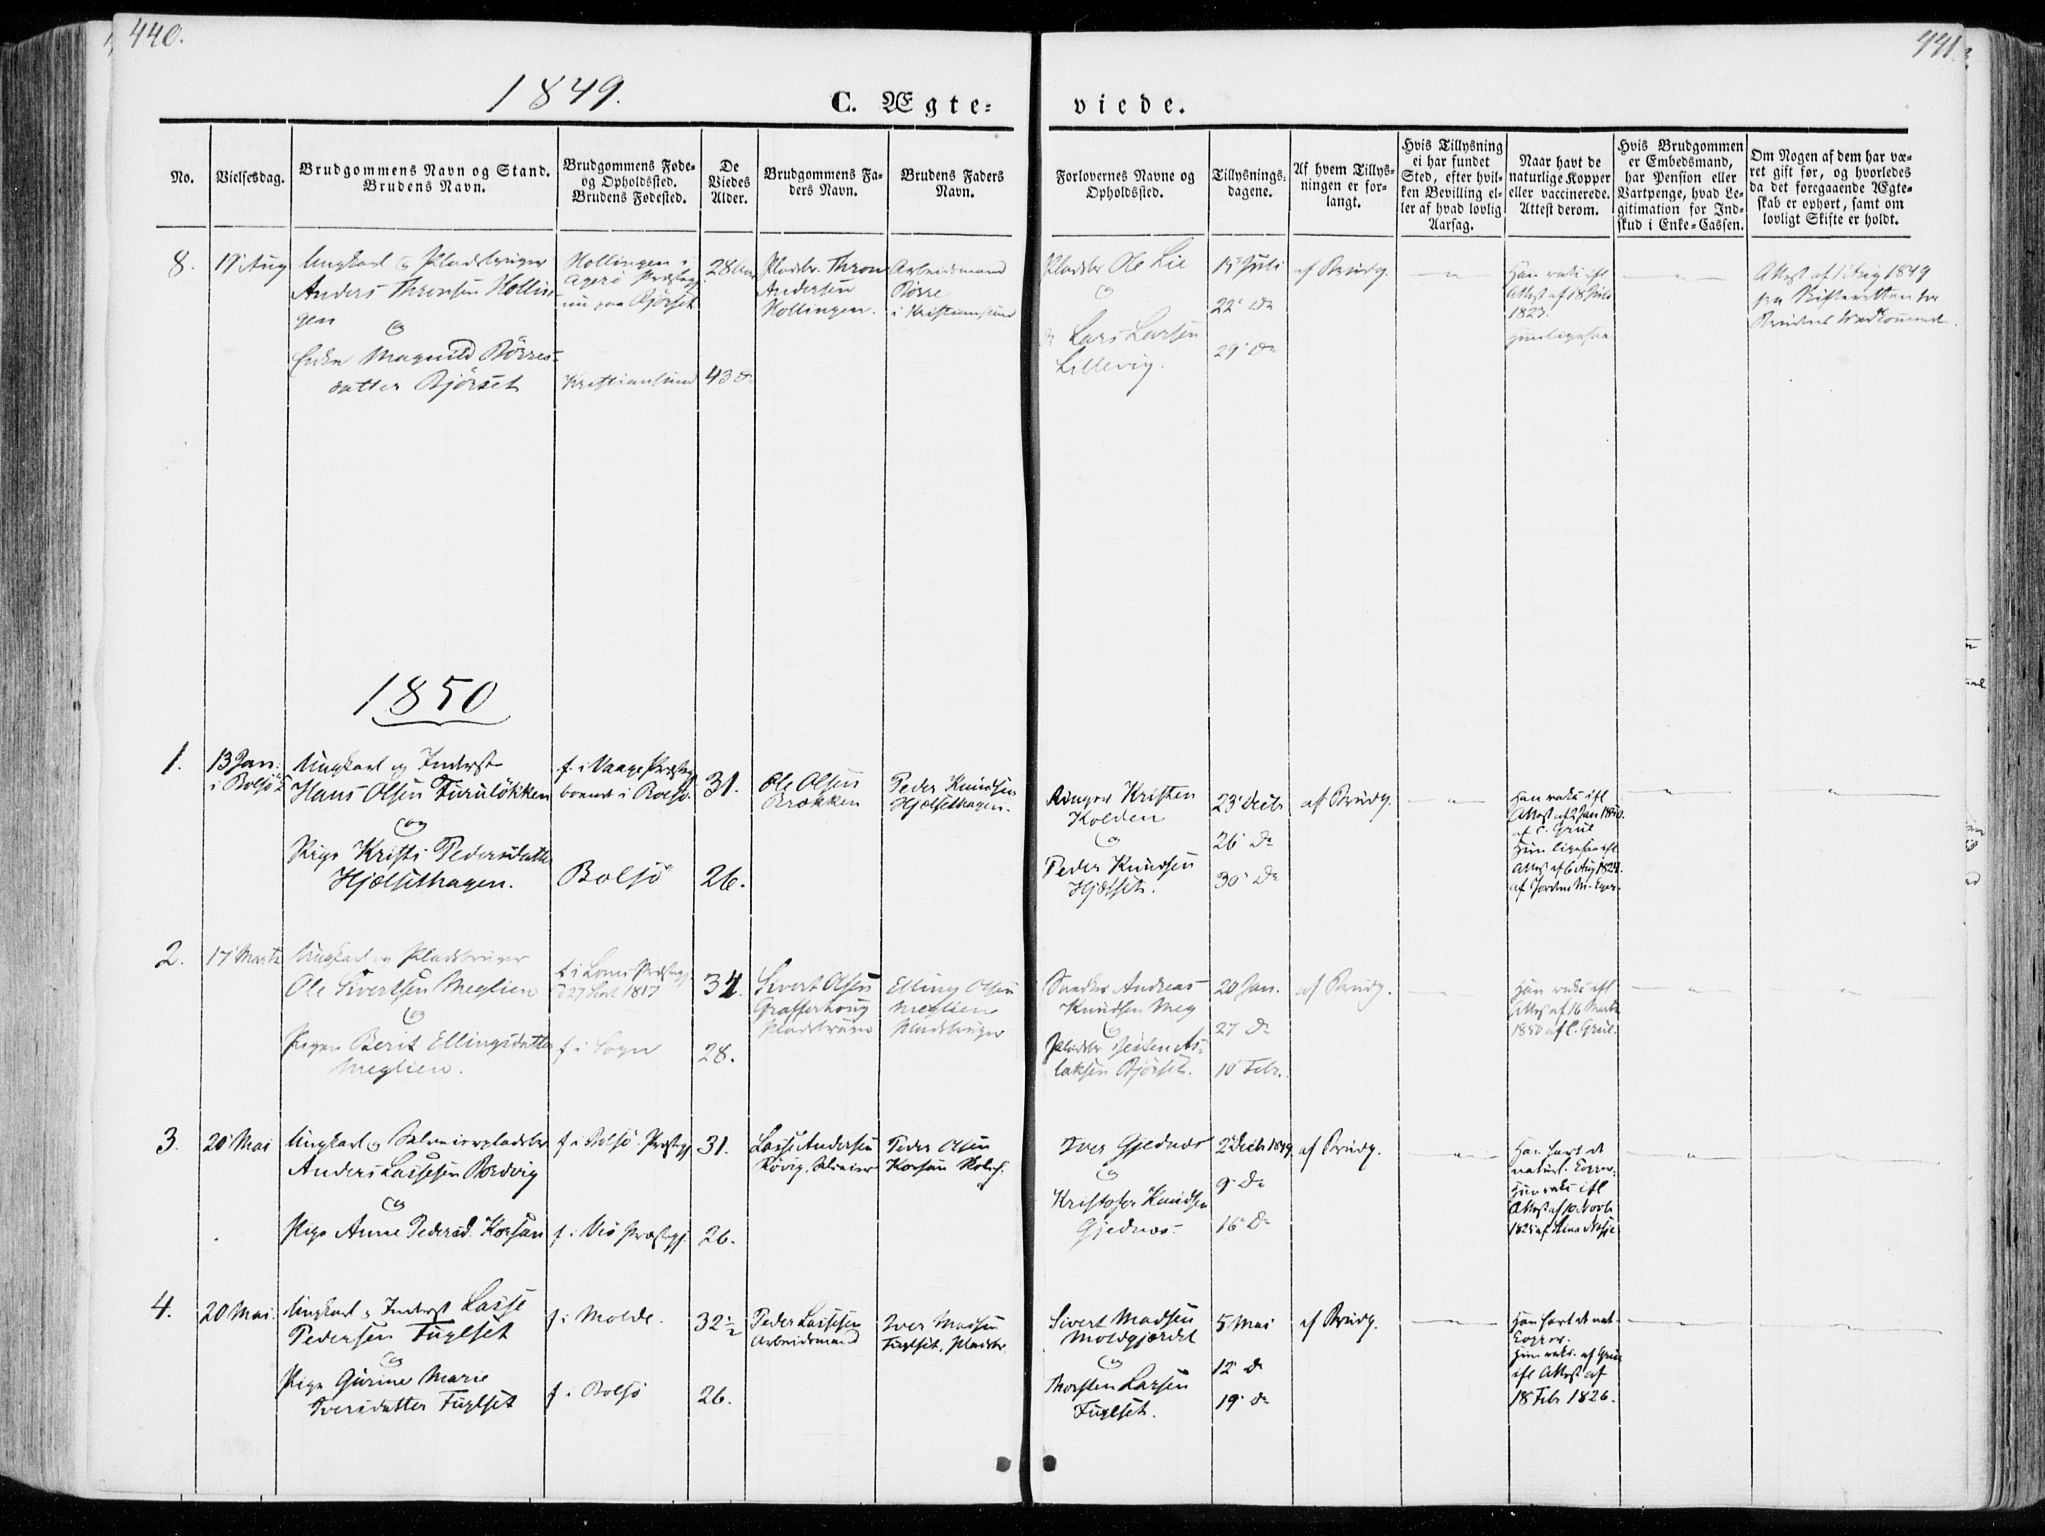 440.
441.
1849.
C. Ægte=
viede.
No.
Vielsesdag.
Brudgommens Navn og Stand.
Brudens Navn.
Brudgommens Føde=
og Opholdssted.
Brudens Fødested.
De
Viedes
Alder.
Brudgommens Fa=
ders Navn.
Brudens Faders
Navn.
Forlovernes Navne og
Opholdssted.
Tillysnings=
dagene.
Af hvem Tillys=
ningen er for=
langt.
Hvis Tillysning
ei har fundet
Sted, efter hvil=
ken Bevilling el=
ler af hvad lovlig
Aarsag.
Naar havt de
naturlige Kopper
eller vaccinerede.
Attest derom.
Hvis Brudgommen
er Embedsmand,
har Pension eller
Vartpenge, hvad Le=
gitimation for Ind=
skud i Enke=Cassen.
Om Nogen af dem har væ=
ret gift før, og hvorledes
da det foregaaende Ægte=
skab er ophørt, samt om
lovligt Skifte er holdt.
8.
19 Aug
Ungkarl og Pladsbruger
Anders Thronsen Hollin=
gen
og
Enke Magnild Børres=
datter Bjørset
Hollingen i
Agerø Præstegj.
nu paa Bjørset
Kristiansund
28 Aar
43 d
Pladsbr. Thron
Andersen
Hollingen.
Arbeidsmand
Børre
i Kristiansund
Pladsbr Ole Lie
og
Lars Larsen
Lillevig.
15 Juli
22 do
29 do
af Brudg.
Han vaks ifl
Attest af 18 Juli
1823.
Hun ligesaa
Attest af 1 Aug 1849
fra Skifteretten for
1850
1.
13 Jan.
i Bolsø K
Ungkarl og Inderst
Hans Olsen Furuløkken
og
Pige Kristi Pedersdatter
Hjælsethagen.
f. i Vaage Præstegj
boende i Bolsø.
Bolsø
31.
26.
Ole Olsen
Brækken
Peder Knudsen
Hjælsethagen.
Ringer Kristen
Kolden
og
Peder Knudsen
Hjælset.
23 Decbr
26 do
30 do
af Brudg.
Han vaks ifl
Attest af 2 Jan 1850.
af C. Grul
Hun ligesaa ifl
Attest af 6 Aug 1824.
2.
17 Marts
Ungkarl og Pladsbruger
Ole Sivertsen Meglien
og
Pigen Berit Ellingsdatter
Meglien.
f i Loms Præstegj.
d 27 Sept 1817
f i Sogn
34.
28.
Sivert Olsen
Graffertoug
Pladsbruger
Elling Olsen
Meglien
Pladsbruger
Andreas
Knudsen Meg
og
Pladsbr As=
laksen Bjørset.
20 Jan.
27 do
10 Febr.
af Brudg.
Han vaks ifl
Attest af 16 Marts
1850 af C. Grul.
3.
20 Mai
Ungkarl og Selveierpladsbr
Anders Lassesen Bordvig
og
Pige Anne Pedersd. Korsan
f i Bolsø Præstegj
f. i Veø Præstegj.
31.
26.
Lasse Andersen
Røvig, Selveier
Peder Olsen
Korsan
Iver Gjednæs
og
Kristofer Knudsen
Gjednæs.
2 Decb 1849
9 do
16 do
af Brudg.
Han havt de
naturl. Kopper.
Hun vaks ifl
Attest af
4.
20 Mai.
Ungkarl og Inderst Lasse
Pedersen Fuglset
og
Pige Gurine Marie
Iversdatter Fuglset
f. i Molde.
f. i Bolsø
32½
26.
Peder Lassesen
Arbeidsmand
Iver Madsen
Fuglset, Pladsbr.
Sivert Madsen
Moldegjærdet
og
Thorsten Larsen
Fuglset.
5 Mai
12 do
19 do
af Brudg.
Han havt de nat
Kopper.
Hun vaks. af Grul
ifl Attest af
18 Febr 1826.